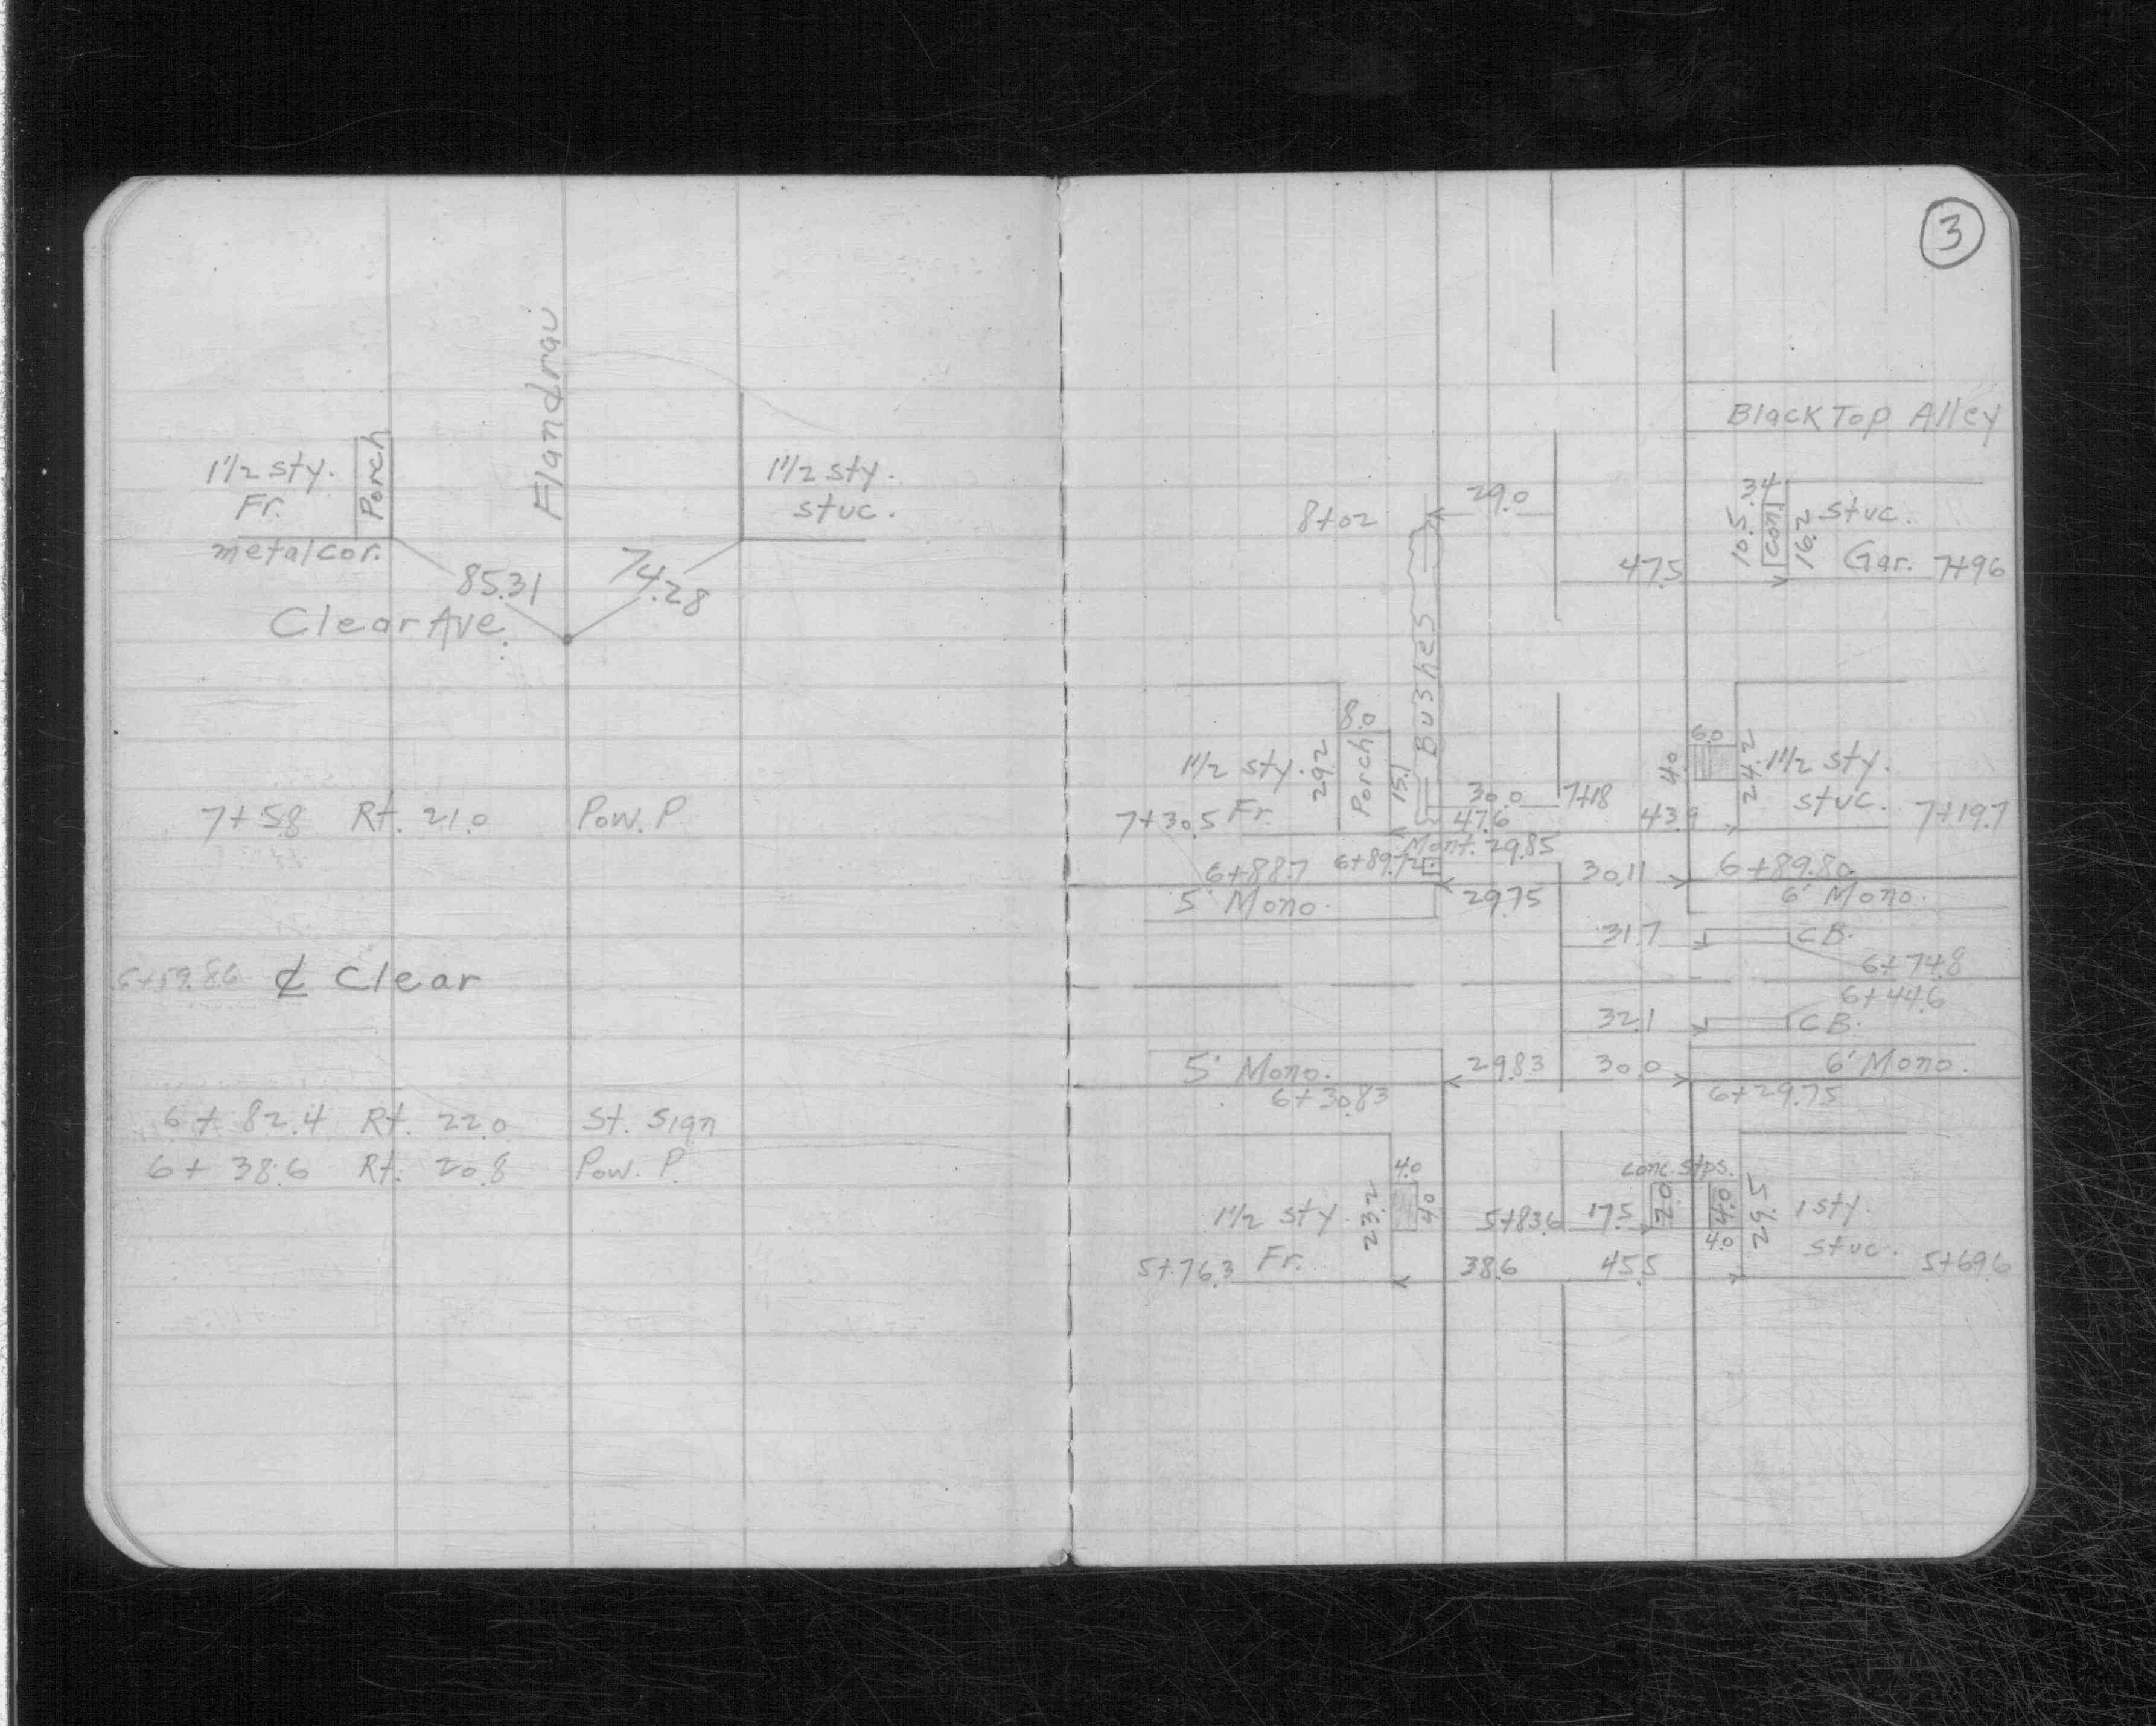 Flandrau
1 1/2 sty.
Fr.
Porch
metal cor.
1 1/2 sty.
stuc.
85.31
74.28
Clear Ave.
7+58 Rt. 21.0 Pow. P.
6+59.86 ℄ Clear
6+82.4 Rt. 22.0 St. Sign
6+38.6 Rt. 20.8 Pow. P.
3
Black Top Alley
8+02
29.0
10.5
3.4
16.2
Stuc.
47.5
Gar. 7+96
Bushes
8.0
6.0
1 1/2 sty.
29.2
Porch
15.1
4.0
24.2
1 1/2 sty.
30.0
7+18
stuc.
7+30.5 Fr.
47.6
43.9
7+19.7
Mont. 29.85
6+88.7
6+89.72
30.11
6+89.80
5' Mono.
29.75
6' Mono.
31.7
C B.
6+74.8
6+44.6
32.1
C B.
5' Mono.
29.83
30.0
6' Mono.
6+30.83
6+29.75
conc. stps.
4.0
1 1/2 sty
23.2
4.0
5+83.6
17.5
2.0
4.0
29.5
1 sty.
4.0
stuc.
5+76.3 Fr.
38.6
45.5
5+69.6